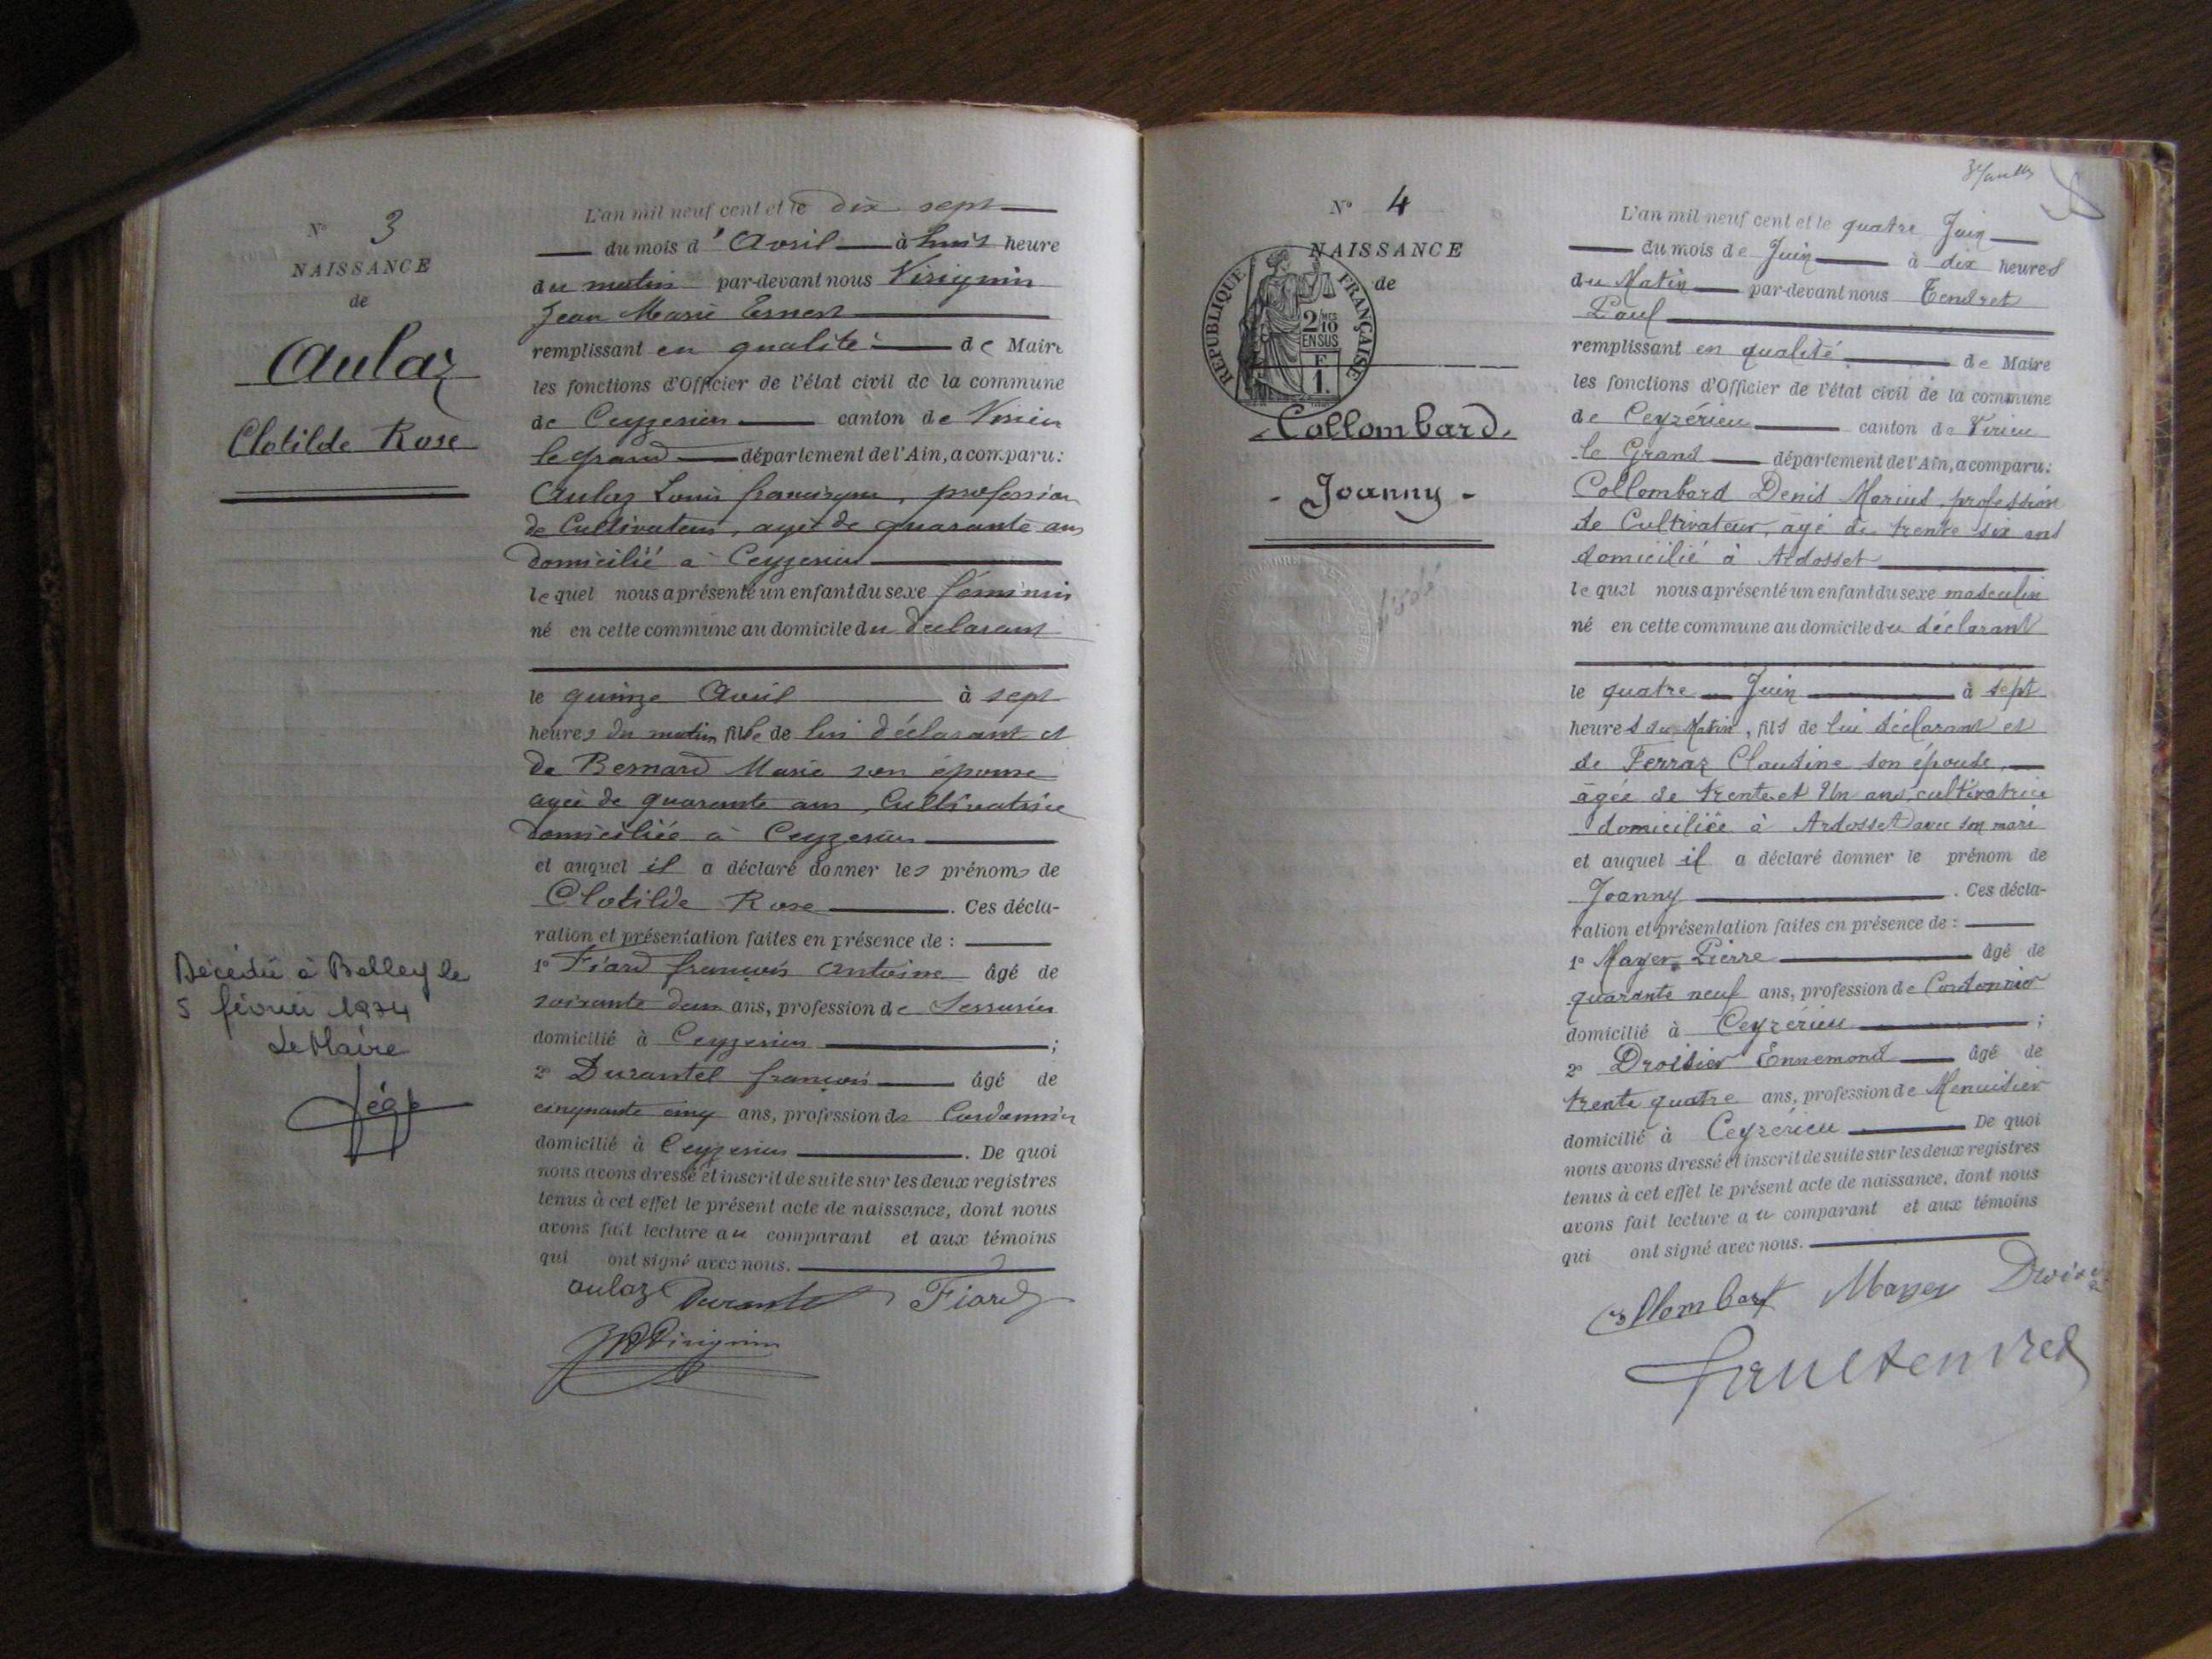 N° 3
NAISSANCE
de
Aulaz
Clotilde Rose
Décédée à Belley le
5 février 1974
Le Maire
L'an mil neuf cent et le dix sept
du mois d'Avril à huit heure
du matin par-devant nous Virignin
Jean Marie Ernest
remplissant en qualité de Maire
les fonctions d'Officier de l'état civil de la commune
de Ceyzerieu canton de Virieu
le grand département de l'Ain, a comparu:
Aulaz Louis françisque, profession
de Cultivateur, agé de quarante ans
domicilié à Ceyzerieu
lequel nous a présenté un enfant du sexe féminin
né en cette commune au domicile du déclarant
le quinze Avril à sept
heures du matin fille de lui déclarant et
de Bernard Marie son épouse
agée de quarante ans, Cultivatrice
domiciliée à Ceyzerieu
et auquel il a déclaré donner les prénoms de
Clotilde Rose. Ces décla-
ration et présentation faites en présence de :
1° Fiard françois Antoine âgé de
soixante deux ans, profession de Serrurier
domicilié à Ceyzerieu ;
2° Durantel françois âgé de
cinquante cinq ans, profession de Cordonnier
domicilié à Ceyzerieu. De quoi
nous avons dressé et inscrit de suite sur les deux registres
tenus à cet effet le présent acte de naissance, dont nous
avons fait lecture au comparant et aux témoins
qui ont signé avec nous.
aulaz Durantel Fiard
Virignin
N° 4
NAISSANCE
de
RÉPUBLIQUE FRANÇAISE
2/10 MES
EN SUS
F
1.
Collombard
- Joanny -
L'an mil neuf cent et le quatre Juin
du mois de Juin à dix heures
du Matin par-devant nous Tendret
Paul
remplissant en qualité de Maire
les fonctions d'Officier de l'état civil de la commune
de Ceyzérieu canton de Virieu
le Grand département de l'Ain, a comparu:
Collombard Denis Marius, profession
de Cultivateur, âgé de trente six ans
domicilié à Ardosset
lequel nous a présenté un enfant du sexe masculin
né en cette commune au domicile du déclarant
le quatre Juin à sept
heures du Matin, fils de lui déclarant et
de Ferraz Claudine son épouse,
âgée de trente et Un ans, cultivatrice
domiciliée à Ardosset avec son mari
et auquel il a déclaré donner le prénom de
Joanny. Ces décla-
ration et présentation faites en présence de :
1° Mayer Pierre âgé de
quarante neuf ans, profession de Cordonnier
domicilié à Ceyzérieu ;
2° Droisier Ennemond âgé de
trente quatre ans, profession de Menuisier
domicilié à Ceyzérieu De quoi
nous avons dressé et inscrit de suite sur les deux registres
tenus à cet effet le présent acte de naissance, dont nous
avons fait lecture au comparant et aux témoins
qui ont signé avec nous.
Collombard Mayer
Paul Tendret